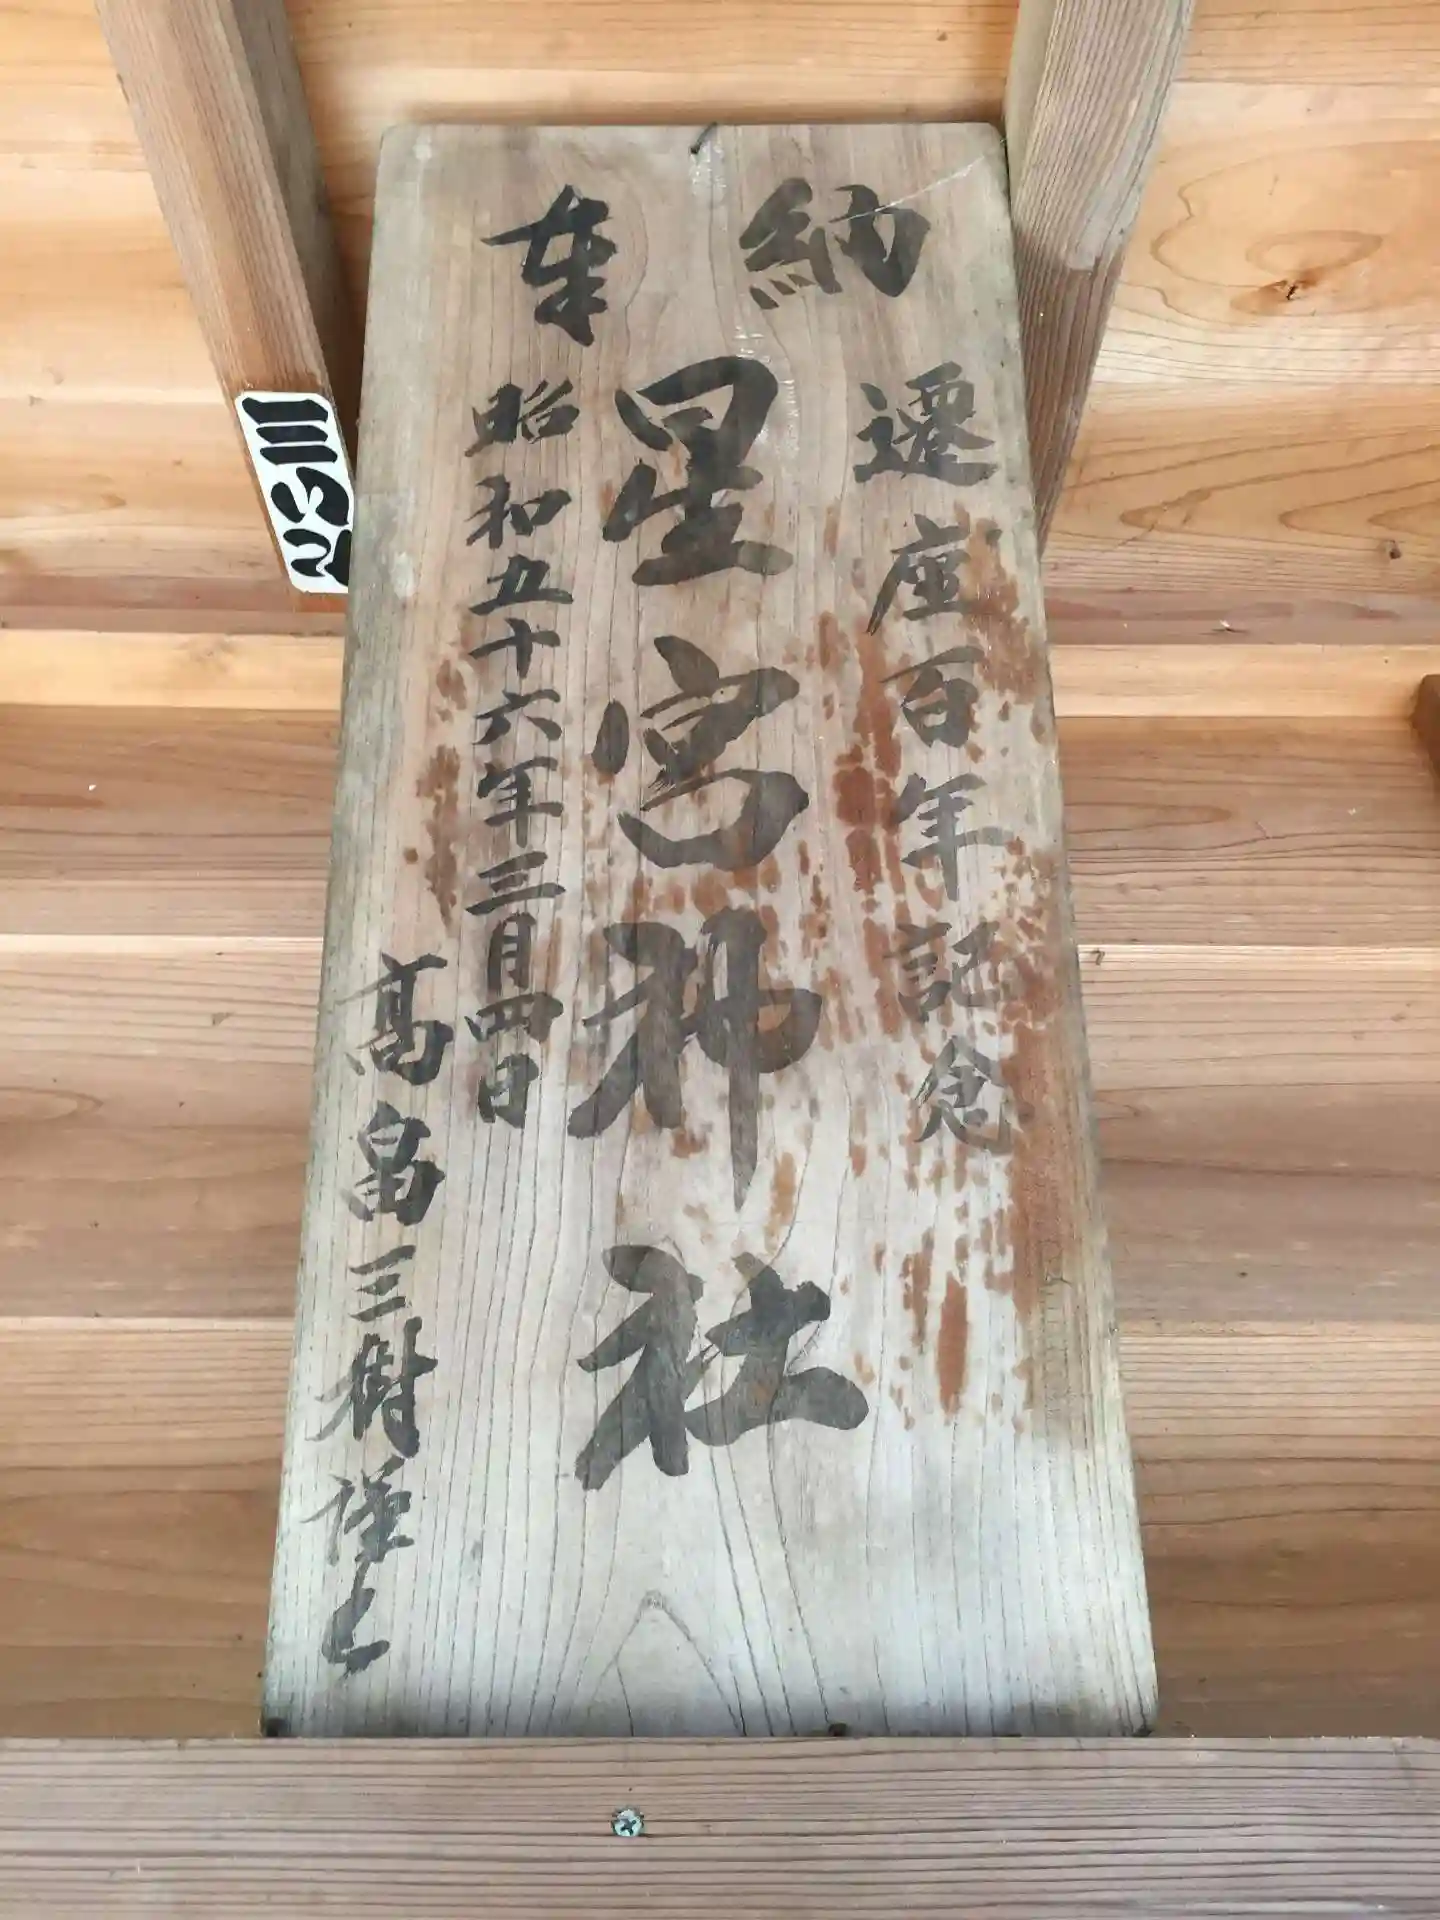 奉納
遷座百年記念
星宮神社
昭和五十六年三月四日
高畠三樹謹上